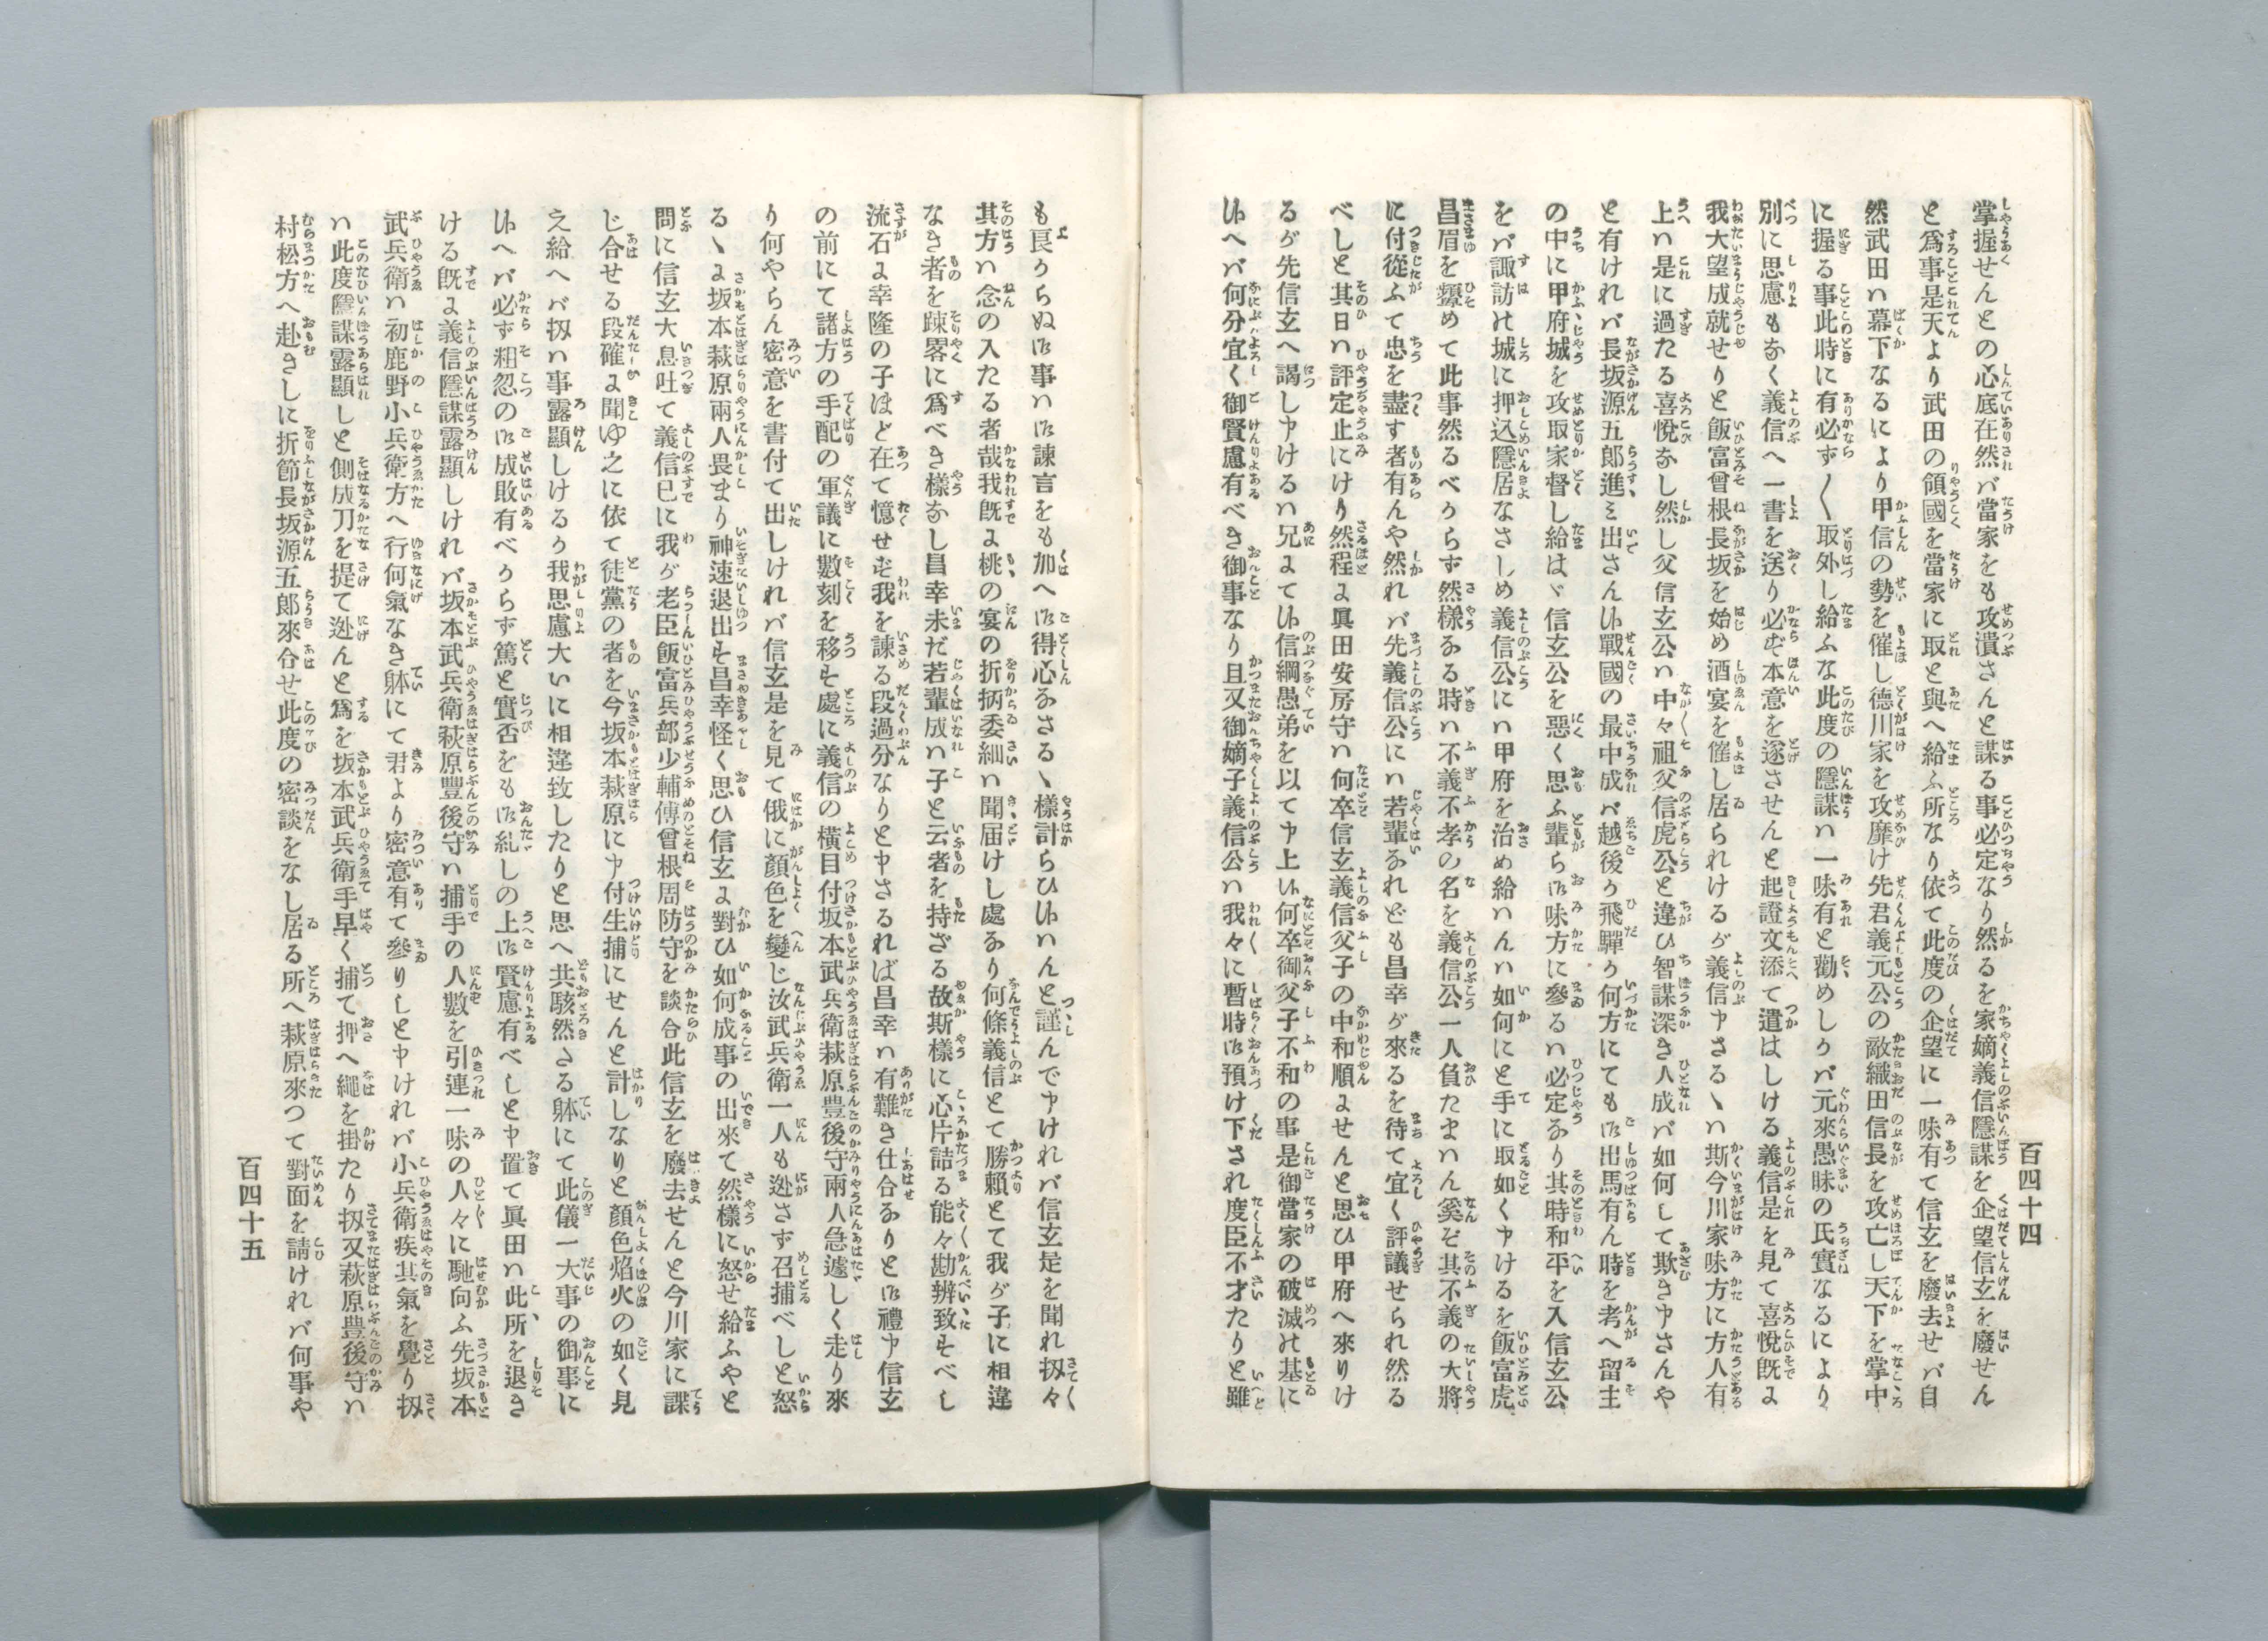 百四十四
掌握せんとの心底在然バ當家をも攻潰さんと謀る事必定なり然るを家嫡義信隱謀を企望信玄を廢せん
と爲事是天より武田の領國を當家に取と與へ給ふ所なり依て此度の企望に一味有て信玄を廢去せバ自
然武田ハ幕下なるにより甲信の勢を催し德川家を攻靡け先君義元公の敵織田信長を攻亡し天下を掌中
に握る事此時に有必ず〱取外し給ふな此度の隱謀ハ一味有と勸めしかバ元來愚昧の氏實なるにより
別に思慮もなく義信へ一書を送り必ず本意を遂させんと起證文添て遣はしける義信是を見て喜悅旣に
我大望成就せりと飯富曾根長坂を始め酒宴を催し居られけるが義信申さるヽハ斯今川家味方に方人有
上ハ是に過たる喜悅なし然し父信玄公ハ中々祖父信虎公と違ひ智謀深き人成バ如何して欺き申さんや
と有けれバ長坂源五郎進ミ出さん候戰國の最中成バ越後か飛驒か何方にても御出馬有ん時を考へ留主
の中に甲府城を攻取家督し給はヾ信玄公を惡く思ふ輩ら御味方に參るハ必定なり其時和平を入信玄公
をバ諏訪の城に押込隱居なさしめ義信公にハ甲府を治め給ハんハ如何にと手に取如く申けるを飯富虎
昌眉を顰めて此事然るべからず然樣なる時ハ不義不孝の名を義信公一人負たまハん奚ぞ其不義の大將
に付從ふて忠を盡す者有んや然れバ先義信公にハ若輩なれども昌幸が來るを待て宜く評議せられ然る
べしと其日ハ評定止にけり然程に眞田安房守ハ何卒信玄義信父子の中和順ませんと思ひ甲府へ來りけ
るが先信玄へ謁し申けるハ兄にて候信綱愚弟を以て申上候何卒御父子不和の事是御當家の破滅の基に
候へバ何分宜く御賢慮有べき御事なり且又御嫡子義信公ハ我々に暫時御預け下され度臣不才たりと雖
も良からぬ御事ハ御諫言をも加へ御得心なさるヽ樣計らひ候ハんと謹んで申けれバ信玄是を聞れ扨々
其方ハ念の入たる者哉我旣に桃の宴の折柄委細ハ聞屆けし處なり何條義信とて勝賴とて我が子に相違
なき者を踈畧に爲べき樣なし昌幸未だ若輩成ハ子と云者を持ざる故斯樣に心片詰る能々勘辨致すべし
流石に幸隆の子ほど在て憶せず我を諫る段過分なりと申さるれば昌幸ハ有難き仕合なりと御禮申信玄
の前にて諸方の手配の軍議に數刻を移す處に義信の橫目付坂本武兵衛萩原豊後守兩人急遽しく走り來
り何やらん密意を書付て出しけれバ信玄是を見て俄に顏色を變じ汝武兵衛一人も迯さず召捕べしと怒
るヽに坂本萩原兩人畏まり神速退出す昌幸怪く思ひ信玄に對ひ如何成事の出來て然樣に怒せ給ふやと
問に信玄大息吐て義信已に我が老臣飯富兵部少輔傅曾根周防守を談合此信玄を廢去せんと今川家に諜
じ合せる段確に聞ゆ之に依て徒黨の者を今坂本萩原に申付生捕にせんと計しなりと顏色焰火の如く見
え給へバ扨ハ事露顯しけるか我思慮大いに相違致したりと思へ共駭然さる躰にて此儀一大事の御事に
候へバ必ず粗忽の御成敗有べからず篤と實否をも御糺しの上御賢慮有べしと申置て眞田ハ此所を退き
ける旣に義信隱謀露顯しけれバ坂本武兵衛萩原豐後守ハ捕手の人數を引連一味の人々に馳向ふ先坂本
武兵衛ハ初鹿野小兵衛方へ行何氣なき躰にて君より密意有て參りしと申けれバ小兵衛疾其氣を覺り扨
ハ此度隱謀露顯しと側成刀を提て迯んと爲るを坂本武兵衛手早く捕て押へ繩を掛たり扨又萩原豊後守ハ
村松方へ赴きしに折節長坂源五郎來合せ此度の密談をなし居る所へ萩原來つて對面を請けれバ何事や
百四十五